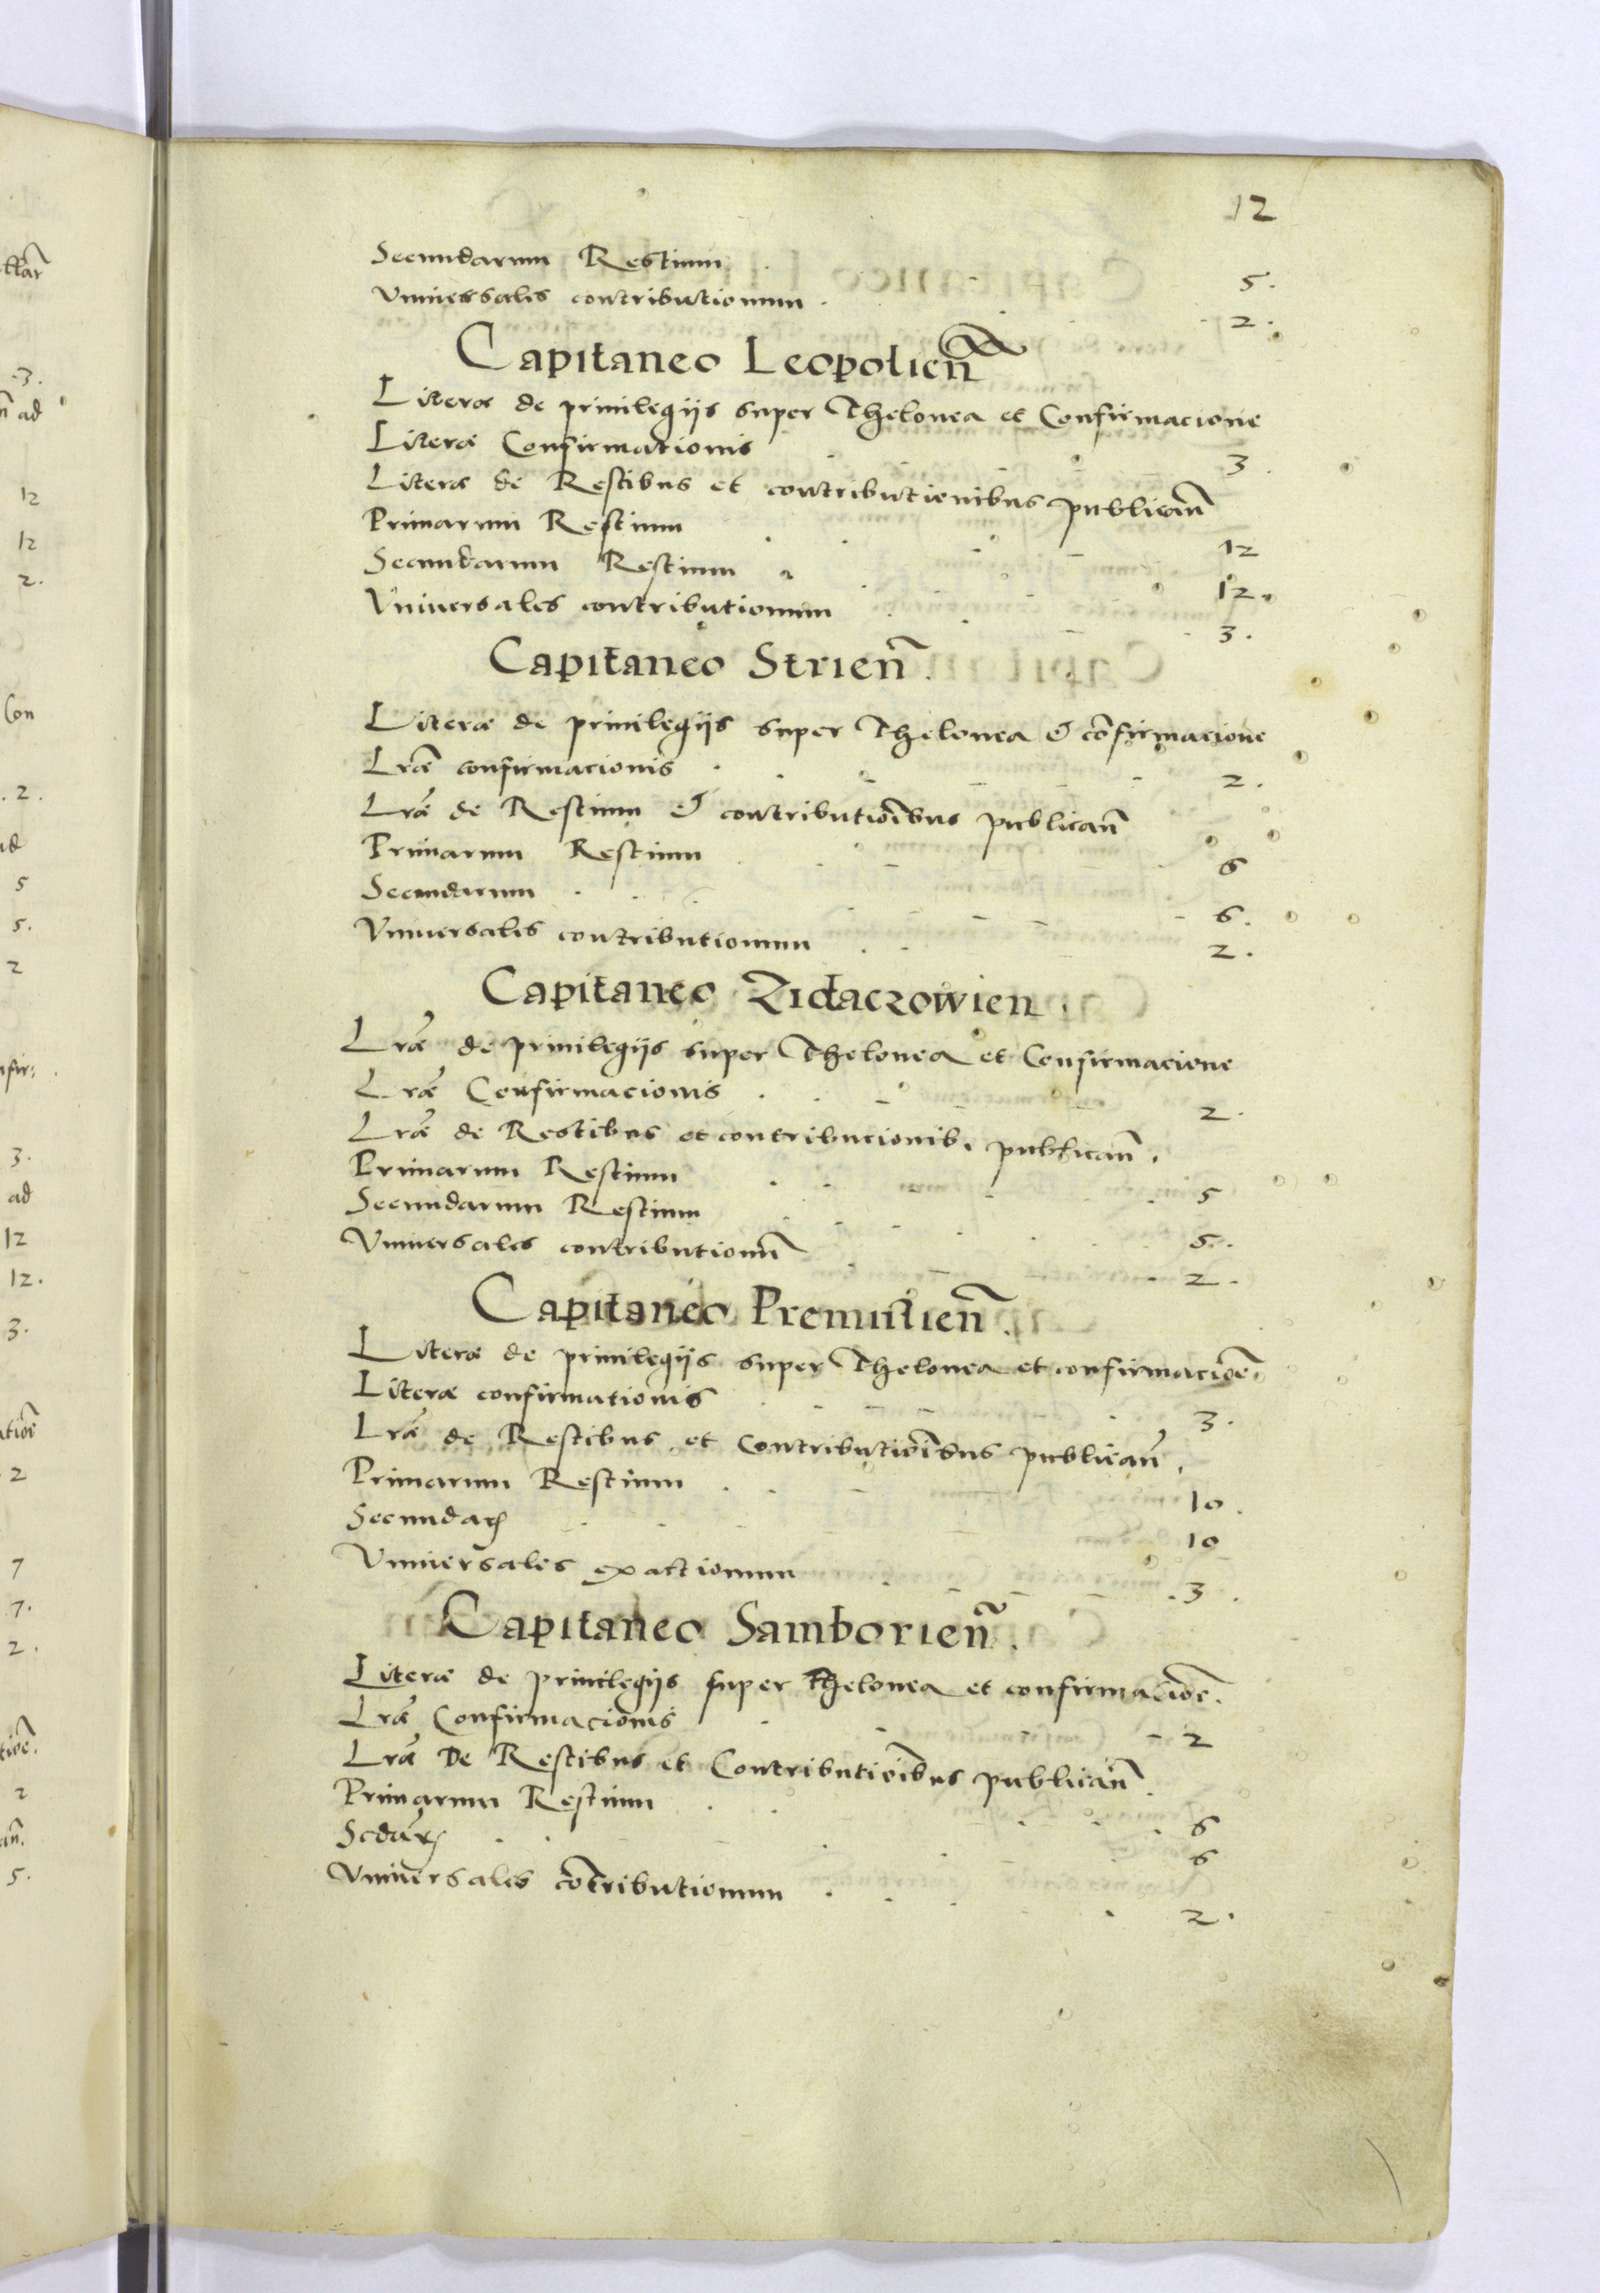 12
Secundarum Restium . . . 5.
Vniuersales contributionum . . . 2.
Capitaneo Leopolien̄
Literæ de priuilegijs super Thelonea et Confirmacione
Literæ Confirmationis . . . 3.
Literæ de Restibus et contributionibus publican̄
Primarum Restium . . . 12
Secundarum Restium . . . 12.
Vniuersales contributionum . . . 3.
Capitaneo Strien̄.
Literæ de priuilegijs super Thelonea & cōfirmacione
Lr̄æ confirmacionis . . . 2.
Lr̄æ de Restium & contributiōibus publican̄
Primarum Restium . . . 6
Secundarum . . . 6.
Vniuersales contributionum . . . 2.
Capitaneo Zidaczowien.
Lr̄æ de priuilegijs super Thelonea et Confirmacione
Lr̄æ Confirmacionis . . . 2.
Lr̄æ de Restibus et contribucionib, publican̄.
Primarum Restium . . . 5
Secundarum Restium . . . 5.
Vniuersales contributionū . . . 2.
Capitaneo Premislien̄.
Literæ de priuilegijs super Thelonea et confirmaciōe.
Literæ confirmationis . . . 3.
Lr̄æ de Restibus et Contributiōibus publican̄.
Primarum Restium . . . 10.
Secundaꝝ . . . 10
Vniuersales exactionum . . . 3.
Capitaneo Samborien̄.
Literæ de priuilegijs super Thelonea et confirmaciōe.
Lr̄æ Confirmacionis . . . 2
Lr̄æ De Restibus et Contributiōibus publican̄.
Primarum Restium . . . 6
Scdāꝝ . . . 6
Vniuersales cōtributionum . . . 2.